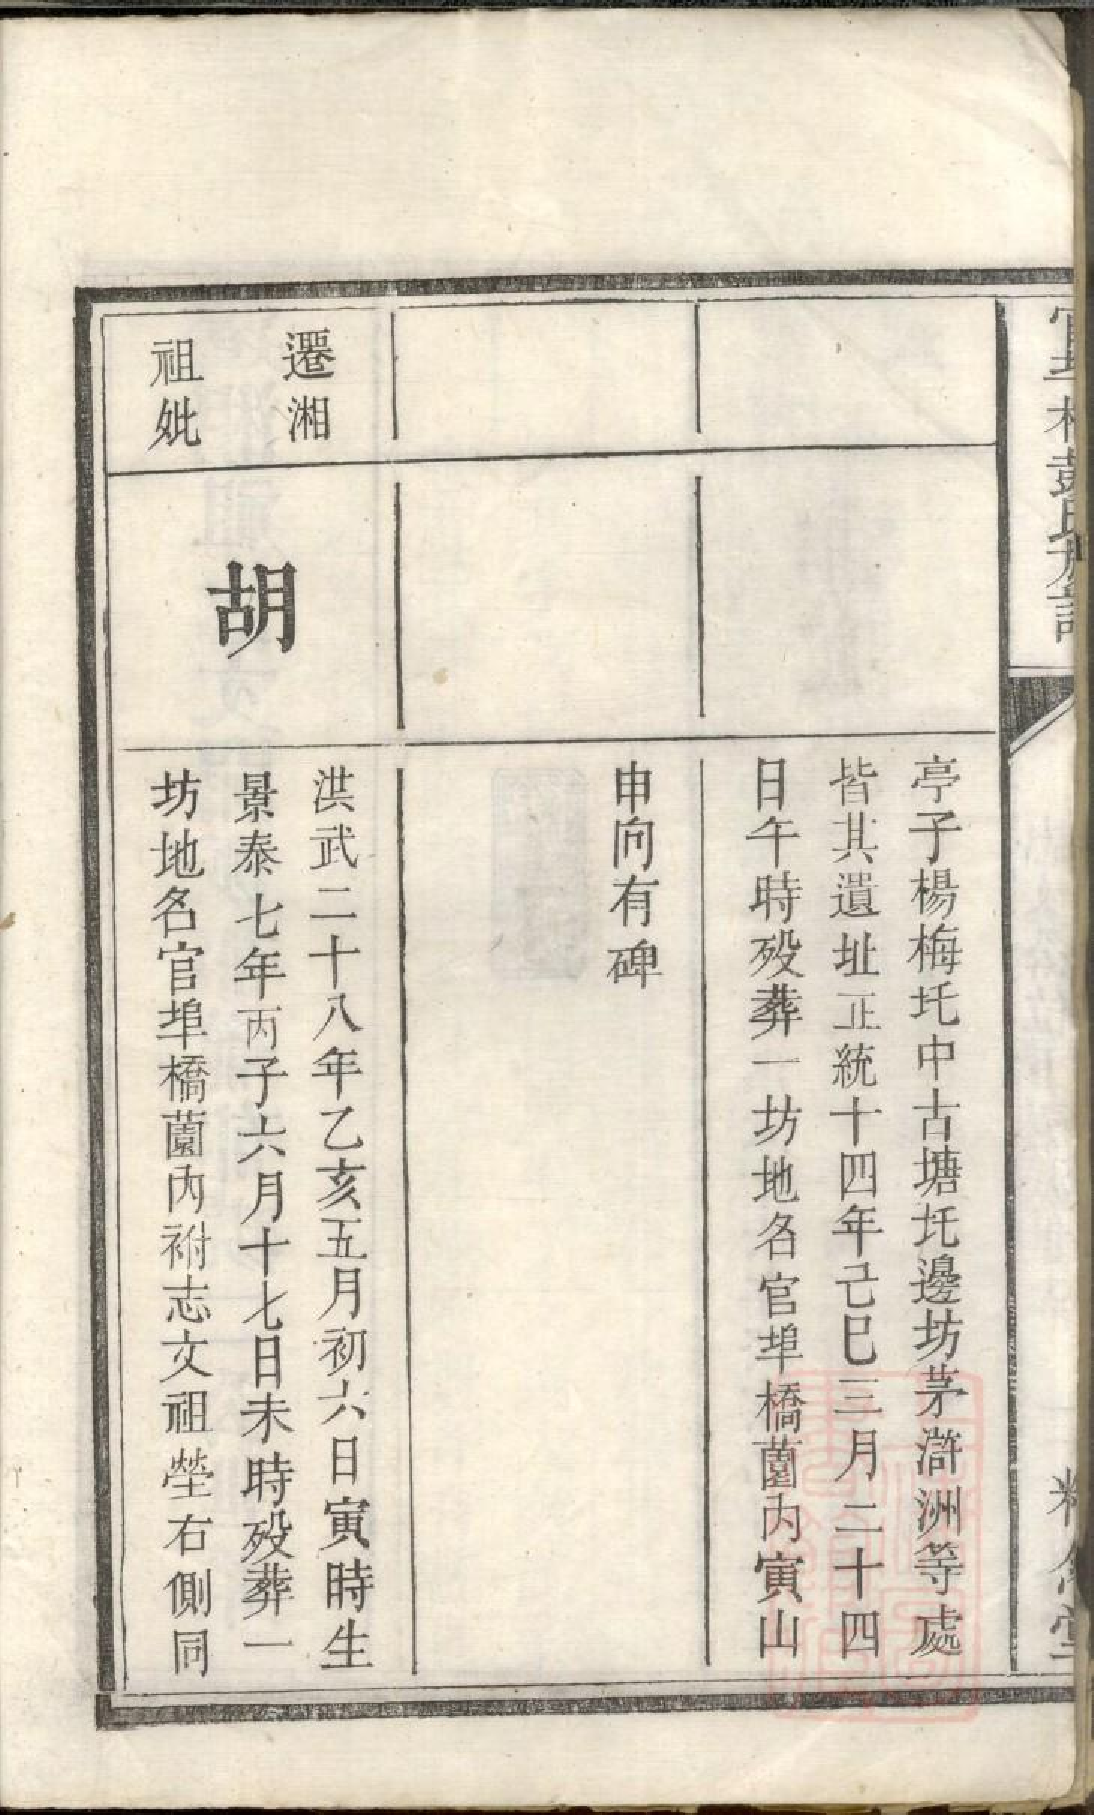 彭氏族譜
亭子楊梅圫中古塘圫邊坊茅滸洲等處
皆其遺址正統十四年己巳三月二十四
日午時歿葬一坊地名官埠橋薗内寅山
申向有碑
遷湘
祖妣
胡
洪武二十八年乙亥五月初六日寅時生
景泰七年丙子六月十七日未時歿葬一
坊地名官埠橋薗内祔志文祖塋右側同